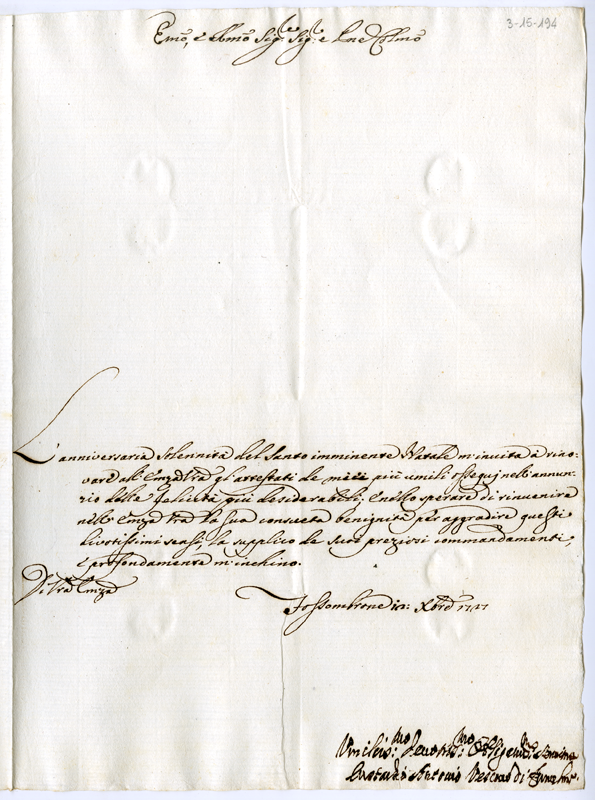 3-15-194
Emo, e Rmo Sig.r Sig.r e Pne Colmo
L'anniversaria Solennità del Santo imminente Natale m'invita à rino-
vare all'Emza Vra gl'attestati de miei più umili ossequj nell'annun-
zio delle felicità più desiderabili; E nello sperare di rinvenire
nell'Emza Vra la sua consueta benignità per aggradire questi
divotissimi sensi, la supplico de suoi preziosi commandamenti,
e profondamente m'inchino.
Di Vra Emza
Fossombrone 12: Xbre 1727
Umiliss.mo Devotis.mo Servitore
Eustachio Antonio Vescovo di